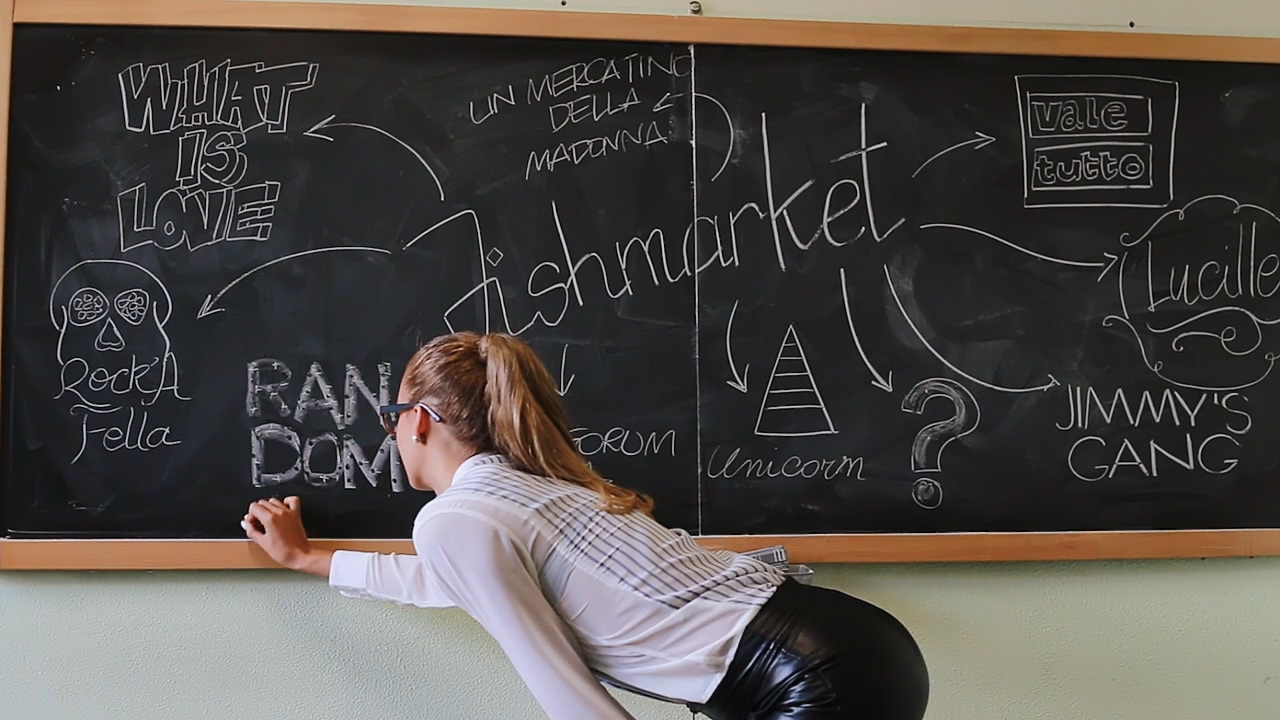 WHAT
IS
LOVE
UN MERCATINO
DELLA
MADONNA
Fishmarket
vale
tutto
Lucille
Rock'A
Fella
RAN
DOM
FORUM
Unicorn
?
JIMMY'S
GANG